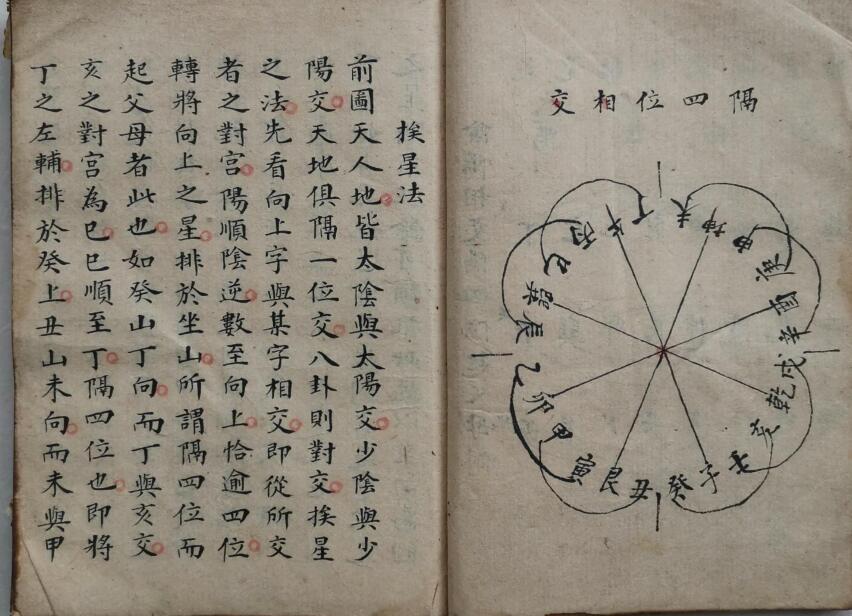 隔四位相交
午
丁
未
坤
申
庚
酉
辛
戌
乾
亥
壬
子
癸
丑
艮
寅
甲
卯
乙
辰
巽
巳
丙
挨星法
前圖天人地皆太陰與太陽交少陰與少
陽交天地俱隔一位交八卦則對交挨星
之法先看向上字與某字相交即從所交
者之對宮陽順陰逆數至向上恰逾四位
轉將向上之星排於坐山所謂隔四位而
起父母者此也如癸山丁向而丁與亥交
亥之對宮為巳巳順至丁隔四位也即將
丁之左輔排於癸上丑山未向而未與甲